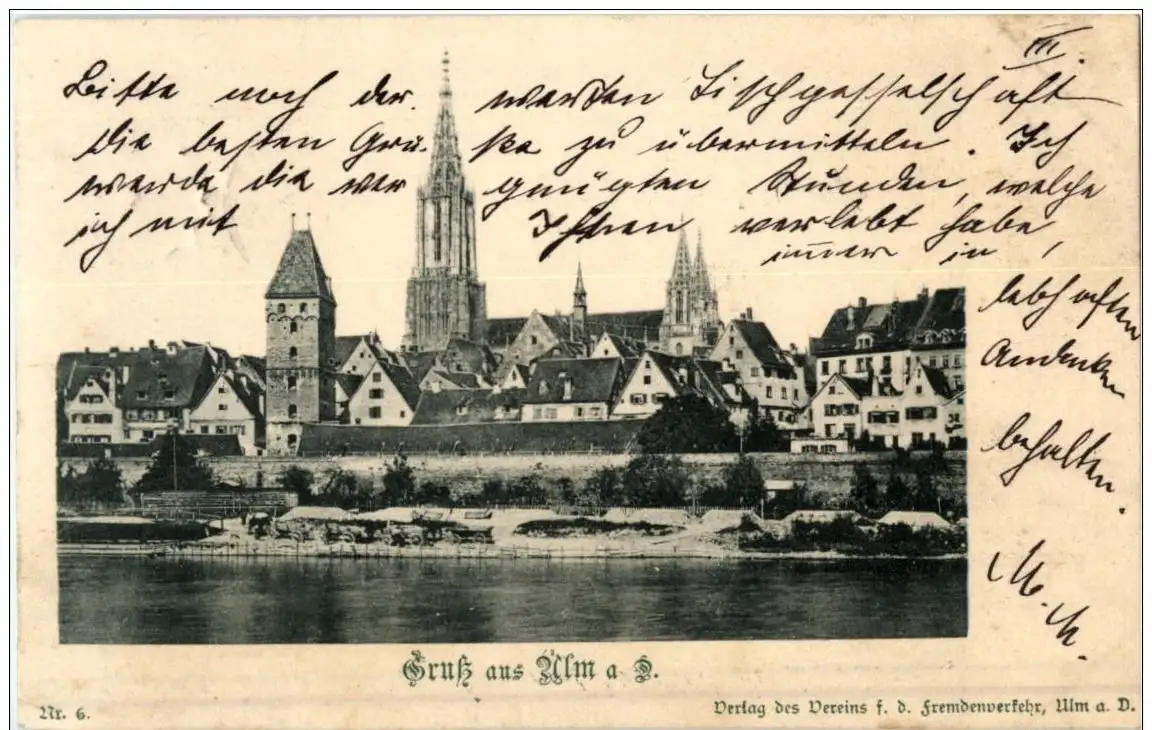 III.
Bitte noch der werten Tischgesellschaft
die besten Grü-ße zu übermitteln. Ich
werde die ver gnügten Stunden, welche
ich mit Ihnen verlebt habe,
immer in
lebhaften
Andenken
behalten.
Gruß aus Ulm a D.
Nr. 6.
Verlag des Vereins f. d. Fremdenverkehr, Ulm a. D.